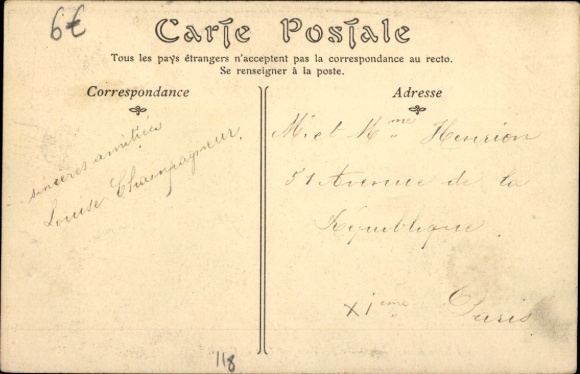 6€
Carte Postale
Tous les pays étrangers n'acceptent pas la correspondance au recto.
Se renseigner à la poste.
Correspondance
sincères amitiées
Louise Champagneur.
Adresse
Mr et Mme Henrion
51 Avenue de la
République.
XIeme Paris
118